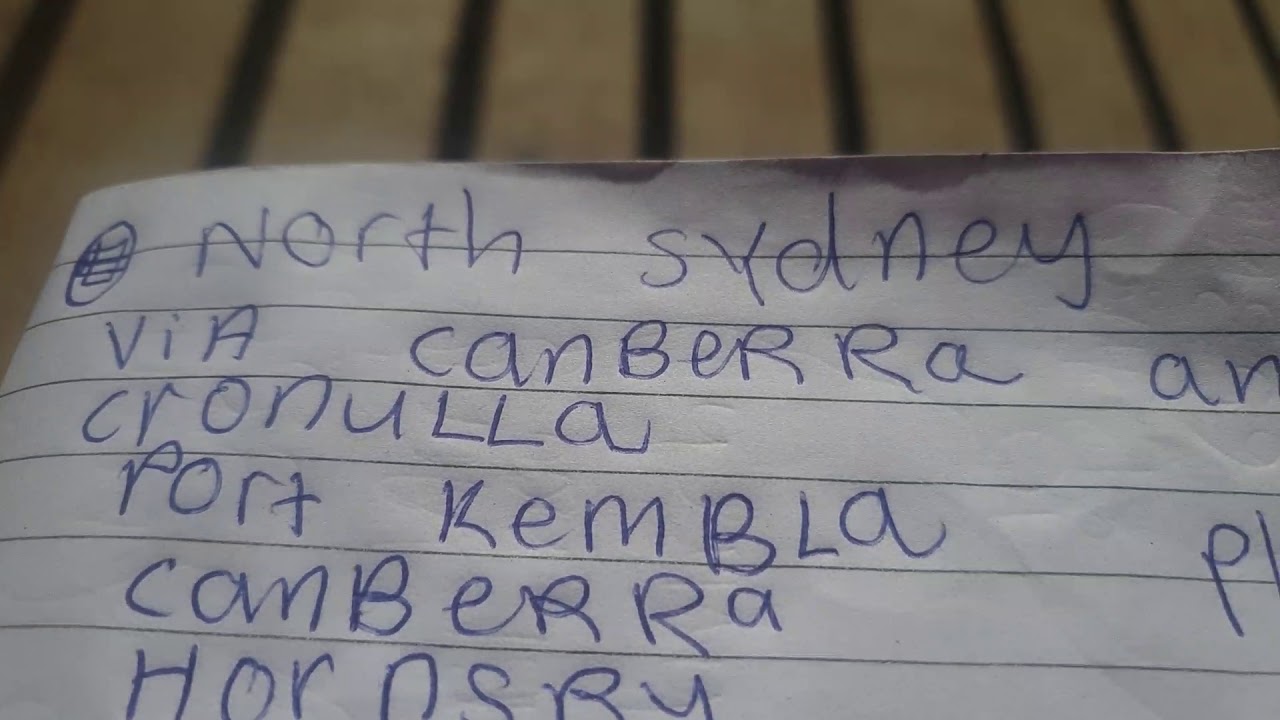 North Sydney
ViA CanBeRRa an
CronuLLa
Port KemBLa Pl
CanBeRRa
HornsBy